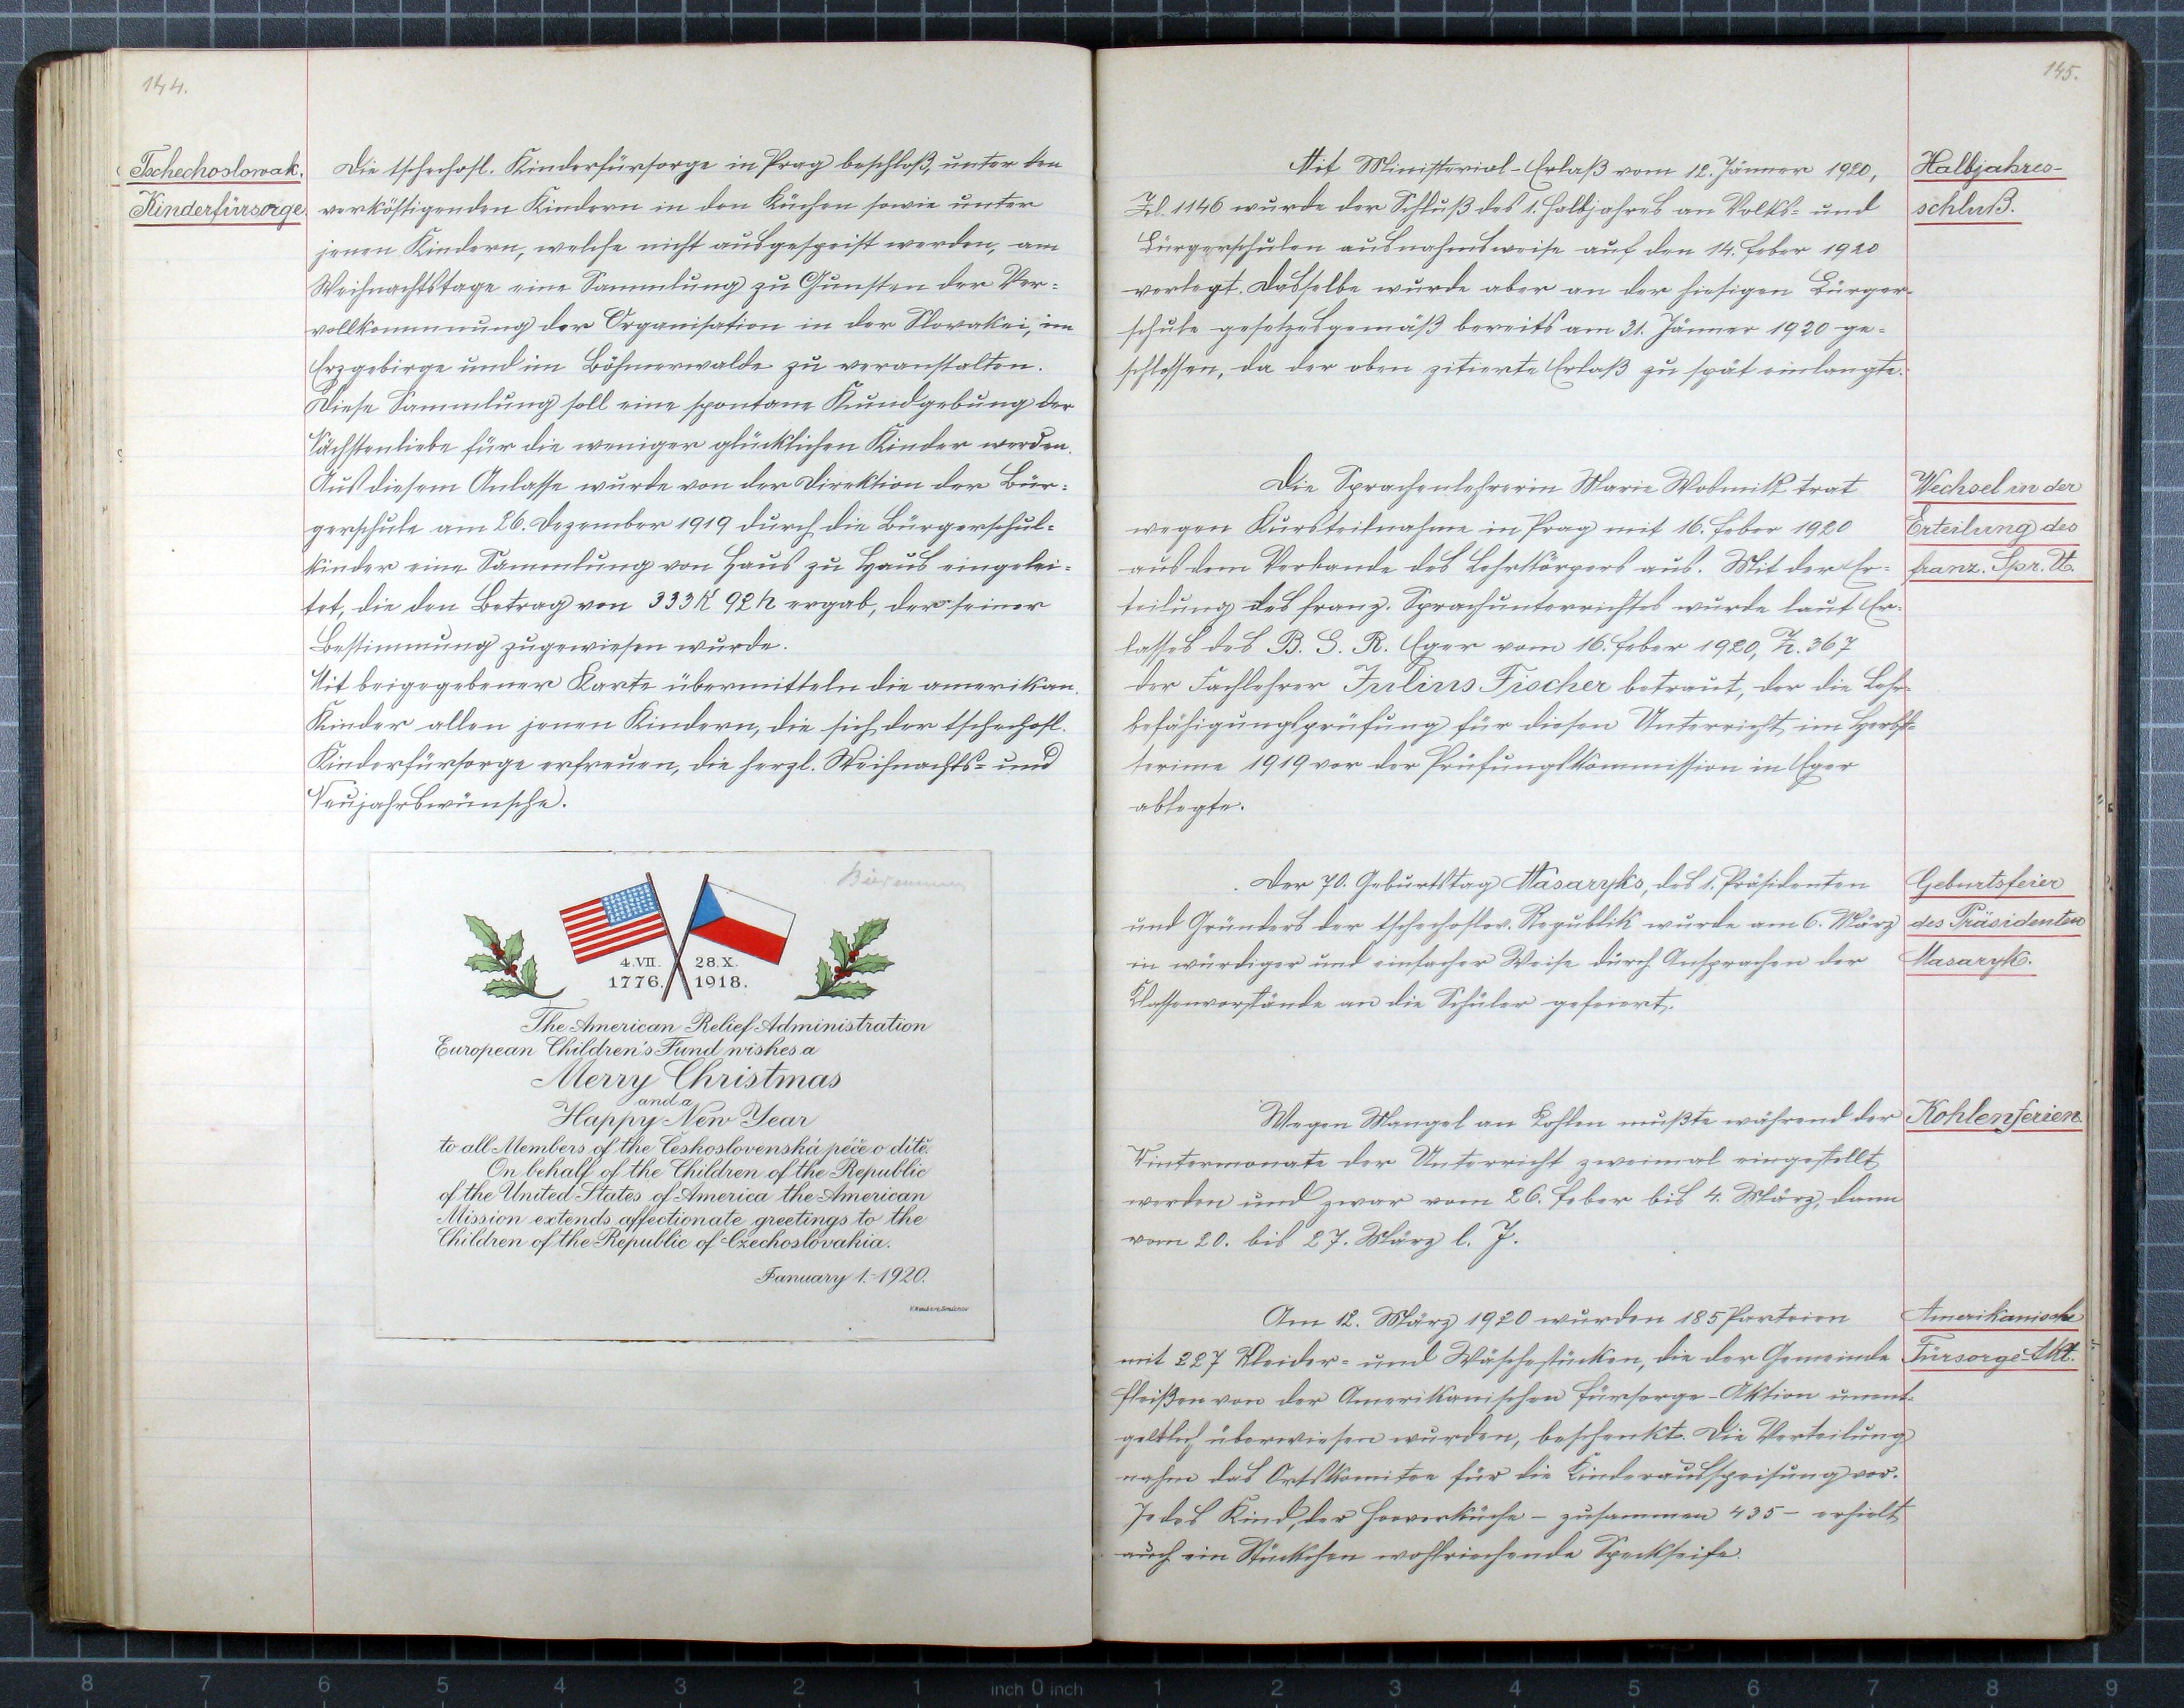 144.
Tschechoslowak.
Kinderfürsorge.
Die tschechosl. Kinderfürsorge in Prag beschloß, unter den
verköstigenden Kindern in den Küchen sowie unter
jenen Kindern, welche nicht ausgespeist werden, am
Weihnachtstage eine Sammlung zu Gunsten der Ver-
vollkommnung der Organisation in der Slovakei, im
Erzgebirge und im Böhmerwalde zu veranstalten.
Diese Sammlung soll eine spontane Kundgebung der
Nächstenliebe für die weniger glücklichen Kinder werden.
Aus diesem Anlasse wurde von der Direktion der Bür-
gerschule am 26. Dezember 1919 durch die Bürgerschul-
kinder eine Sammlung von Haus zu Haus eingelei-
tet, die den Betrag von 333 K 92 h ergab, der seiner
Bestimmung zugewiesen wurde.
Mit beigegebener Karte übermitteln die amerikan.
Kinder allen jenen Kindern, die sich der tschechosl.
Kinderfürsorge erfreuen, die herzl. Weihnachts- und
Neujahrswünsche.
4.VII. 28.X.
1776. 1918.
The American Relief Administration
European Children's Fund wishes a
Merry Christmas
and a
Happy New Year
to all Members of the Československá péče o dítě.
On behalf of the Children of the Republic
of the United States of America the American
Mission extends affectionate greetings to the
Children of the Republic of Czechoslovakia.
January 1.-1920.
145.
Mit Ministerial-Erlaß vom 12. Jänner 1920,
Zl. 1146 wurde der Schluß des 1. Halbjahres an Volks- und
Bürgerschulen ausnahmsweise auf den 14. Feber 1920
verlegt. Dasselbe wurde aber an der hiesigen Bürger-
schule gesetzesgemäß bereits am 31. Jänner 1920 ge-
schlossen, da der oben zitierte Erlaß zu spät einlangte.
Halbjahres-
schluß.
Die Sprachenlehrerin Marie trat
wegen Kursteilnahme in Prag mit 16. Feber 1920
aus dem Verbande des Lehrkörpers aus. Mit der Er-
teilung des franz. Sprachunterrichtes wurde laut Er-
lasses des B. S. R. Eger vom 16. Feber 1920, Z. 367
der Fachlehrer Julius Fischer betraut, der die Lehr-
befähigungsprüfung für diesen Unterricht im Herbst-
termine 1919 vor der Prüfungskommission in Eger
ablegte.
Wechsel in der
Erteilung des
franz. Spr. U.
Der 70. Geburtstag Masaryks, des 1. Präsidenten
und Gründers der tschechoslov. Republik wurde am 6. März
in würdiger und einfacher Weise durch Ansprachen der
Klassenvorstände an die Schüler gefeiert.
Geburtsfeier
des Präsidenten
Masaryk.
Wegen Mangel an Kohlen mußte während der
Wintermonate der Unterricht zweimal eingestellt
werden und zwar vom 26. Feber bis 4. März, dann
vom 20. bis 27. März l. J.
Kohlenferien.
Am 12. März 1920 wurden 185 Parteien
mit 227 Kleider- und Wäschestücken, die der Gemeinde
Fleißen von der Amerikanischen Fürsorge-Aktion unent-
geltlich überwiesen wurden, beschenkt. Die Verteilung
nahm das Ortskomitee für die Kinderausspeisung vor.
Jedes Kind, der Hooverküche - zusammen 435 - erhielt
auch ein Stückchen wohlriechende Speckseife.
Amerikanische
Fürsorge-Akt.
8 7 6 5 4 3 2 1 inch 0 inch 1 2 3 4 5 6 7 8 9